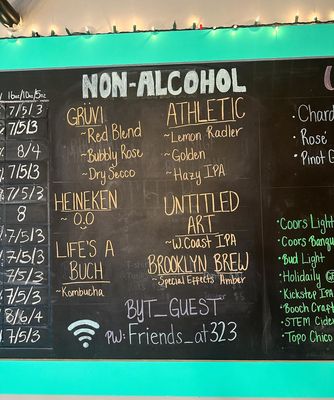 16oz/10oz/5oz
7/5/3
7/5/3
8/4
7/5/3
7/5/3
8
7/5/3
7/5/3
7/5/3
7/5/3
8/6/4
7/5/3
NON-ALCOHOL
GRÜVI
~Red Blend
~Bubbly Rose
~Dry Secco
HEINEKEN
~ 0.0
LIFE'S A
BUCH
~Kombucha
ATHLETIC
~Lemon Radler
~Golden
~Hazy IPA
UNTITLED
ART
~W.Coast IPA
BROOKLYN BREW
~Special Effects Amber
BYT_GUEST
PW: Friends_at323
•Rose
•Pinot G
•Coors Light
•Coors Banqu
•Bud Light
•Holidaily
•Kickstep IPA
•Booch Craft
•STEM Cider
•Topo Chico